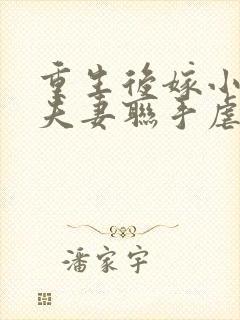 重生後嫁小
夫妻聯手虐
潘家宇